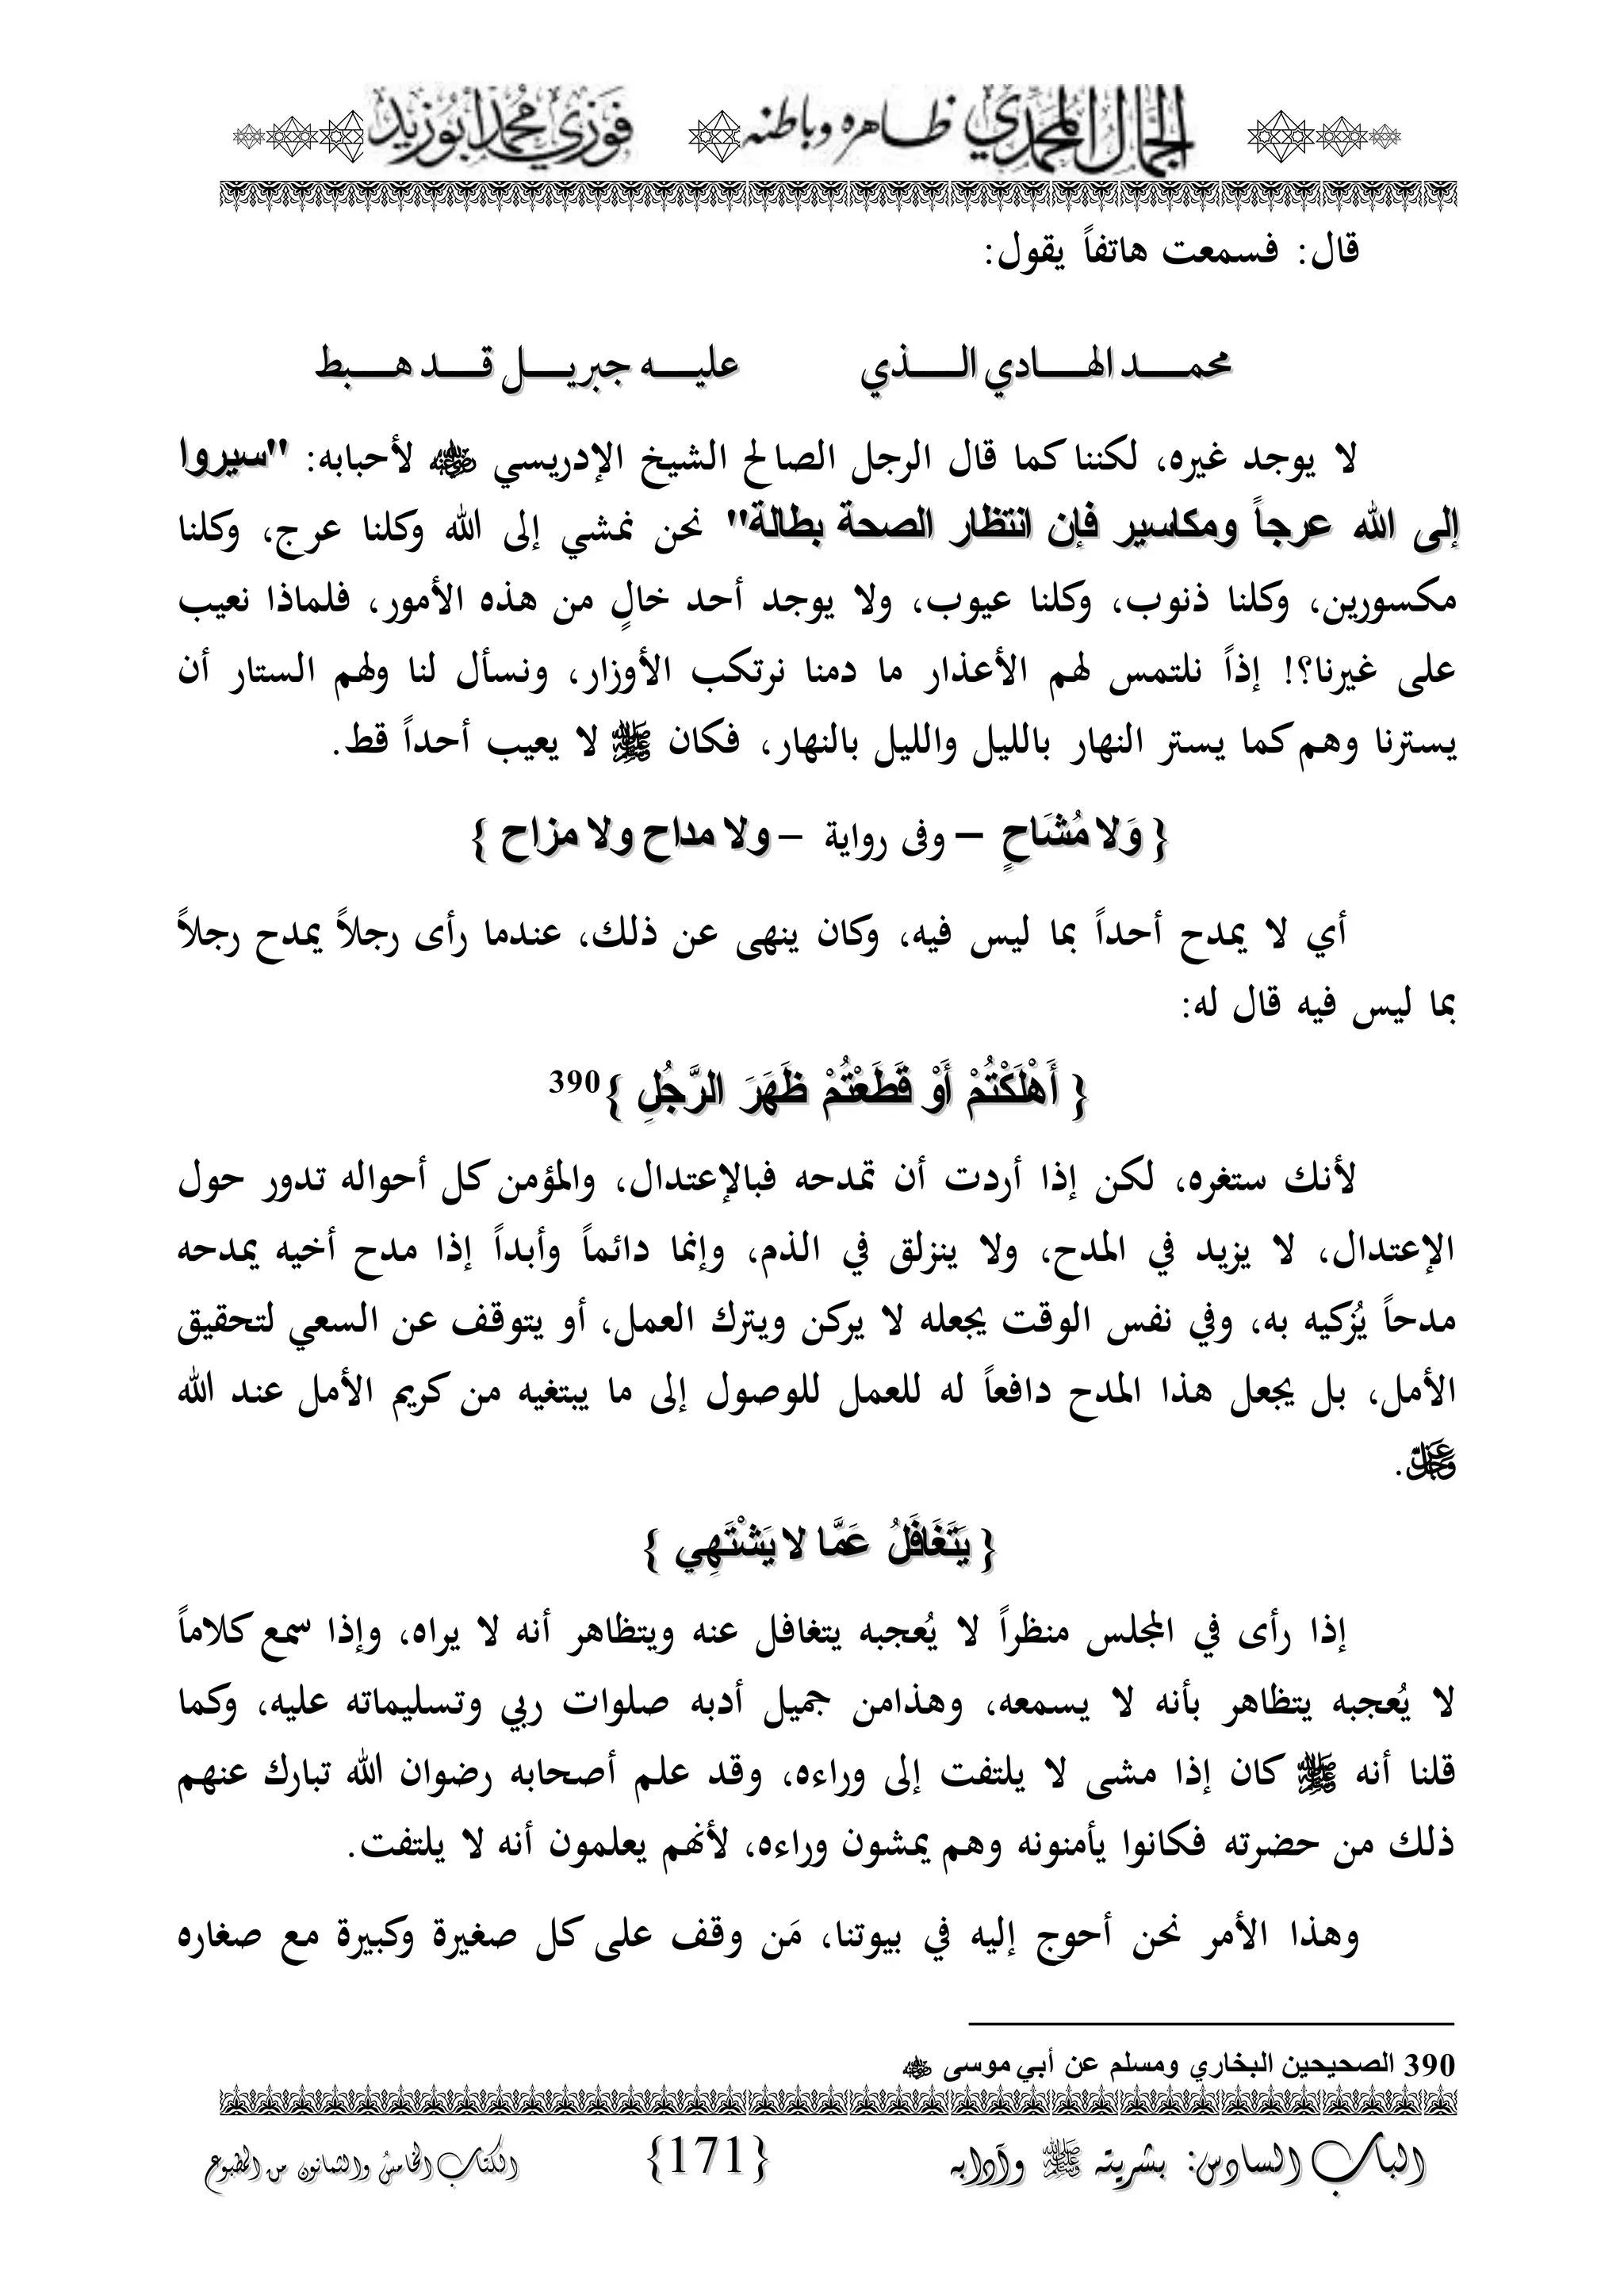 الجمال المحمدي ظاهره وباطنه فوزي محمد أبوزيد
قال: فسمعت هاتفاً يقول:
محمد الهادي الذي عليه جبريل قد هبط
لا يوجد غيره، لكننا كما قال الرجل الصالح الشيخ الإدريسي رضي الله عنه لأحبابه: "سيروا
إلى الله عرجاً ومكاسير فإن انتظار الصحة بطالة" نحن نمشي إلى الله وكلنا عرج، وكلنا
مكسورين، وكلنا ذنوب، وكلنا عيوب، ولا يوجد أحد خالٍ من هذه الأمور، فلماذا نعيب
على غيرنا؟! إذاً نلتمس لهم الأعذار ما دمنا نرتكب الأوزار، ونسأل لنا ولهم الستار أن
يسترنا وهم كما يستر النهار بالليل والليل بالنهار، فكان ﷺ لا يعيب أحداً قط.
{ وَلا مُشَاحٍ – وفى رواية – ولا مداح ولا مزاح }
أي لا يمدح أحداً بما ليس فيه، وكان ينهى عن ذلك، عندما رأى رجلاً يمدح رجلاً
بما ليس فيه قال له:
{ أَهْلَكْتُمْ أَوْ قَطَعْتُمْ ظَهَرَ الرَّجُلِ }390
لأنك ستغره، لكن إذا أردت أن تمدحه فبالإعتدال، والمؤمن كل أحواله تدور حول
الإعتدال، لا يزيد في المدح، ولا ينزلق في الذم، وإنما دائماً وأبداً إذا مدح أخيه يمدحه
مدحاً يُزكيه به، وفي نفس الوقت يجعله لا يركن ويترك العمل، أو يتوقف عن السعي لتحقيق
الأمل، بل يجعل هذا المدح دافعاً له للعمل للوصول إلى ما يبتغيه من كريم الأمل عند الله
عز وجل.
{ يَتَغَافَلُ عَمَّا لا يَشْتَهِي }
إذا رأى في المجلس منظراً لا يُعجبه يتغافل عنه ويتظاهر أنه لا يراه، وإذا سمع كلاماً
لا يُعجبه يتظاهر بأنه لا يسمعه، وهذامن جميل أدبه صلوات ربي وتسليماته عليه، وكما
قلنا أنه ﷺ كان إذا مشى لا يلتفت إلى وراءه، وقد علم أصحابه رضوان الله تبارك عنهم
ذلك من حضرته فكانوا يأمنونه وهم يمشون وراءه، لأنهم يعلمون أنه لا يلتفت.
وهذا الأمر نحن أحوج إليه في بيوتنا، مَن وقف على كل صغيرة وكبيرة مع صغاره
390 الصحيحين البخاري ومسلم عن أبي موسى رضي الله عنه
الباب السادس: بشريته ﷺ وآدابه {171} الكتاب الخامس والثمانون من المطبوع